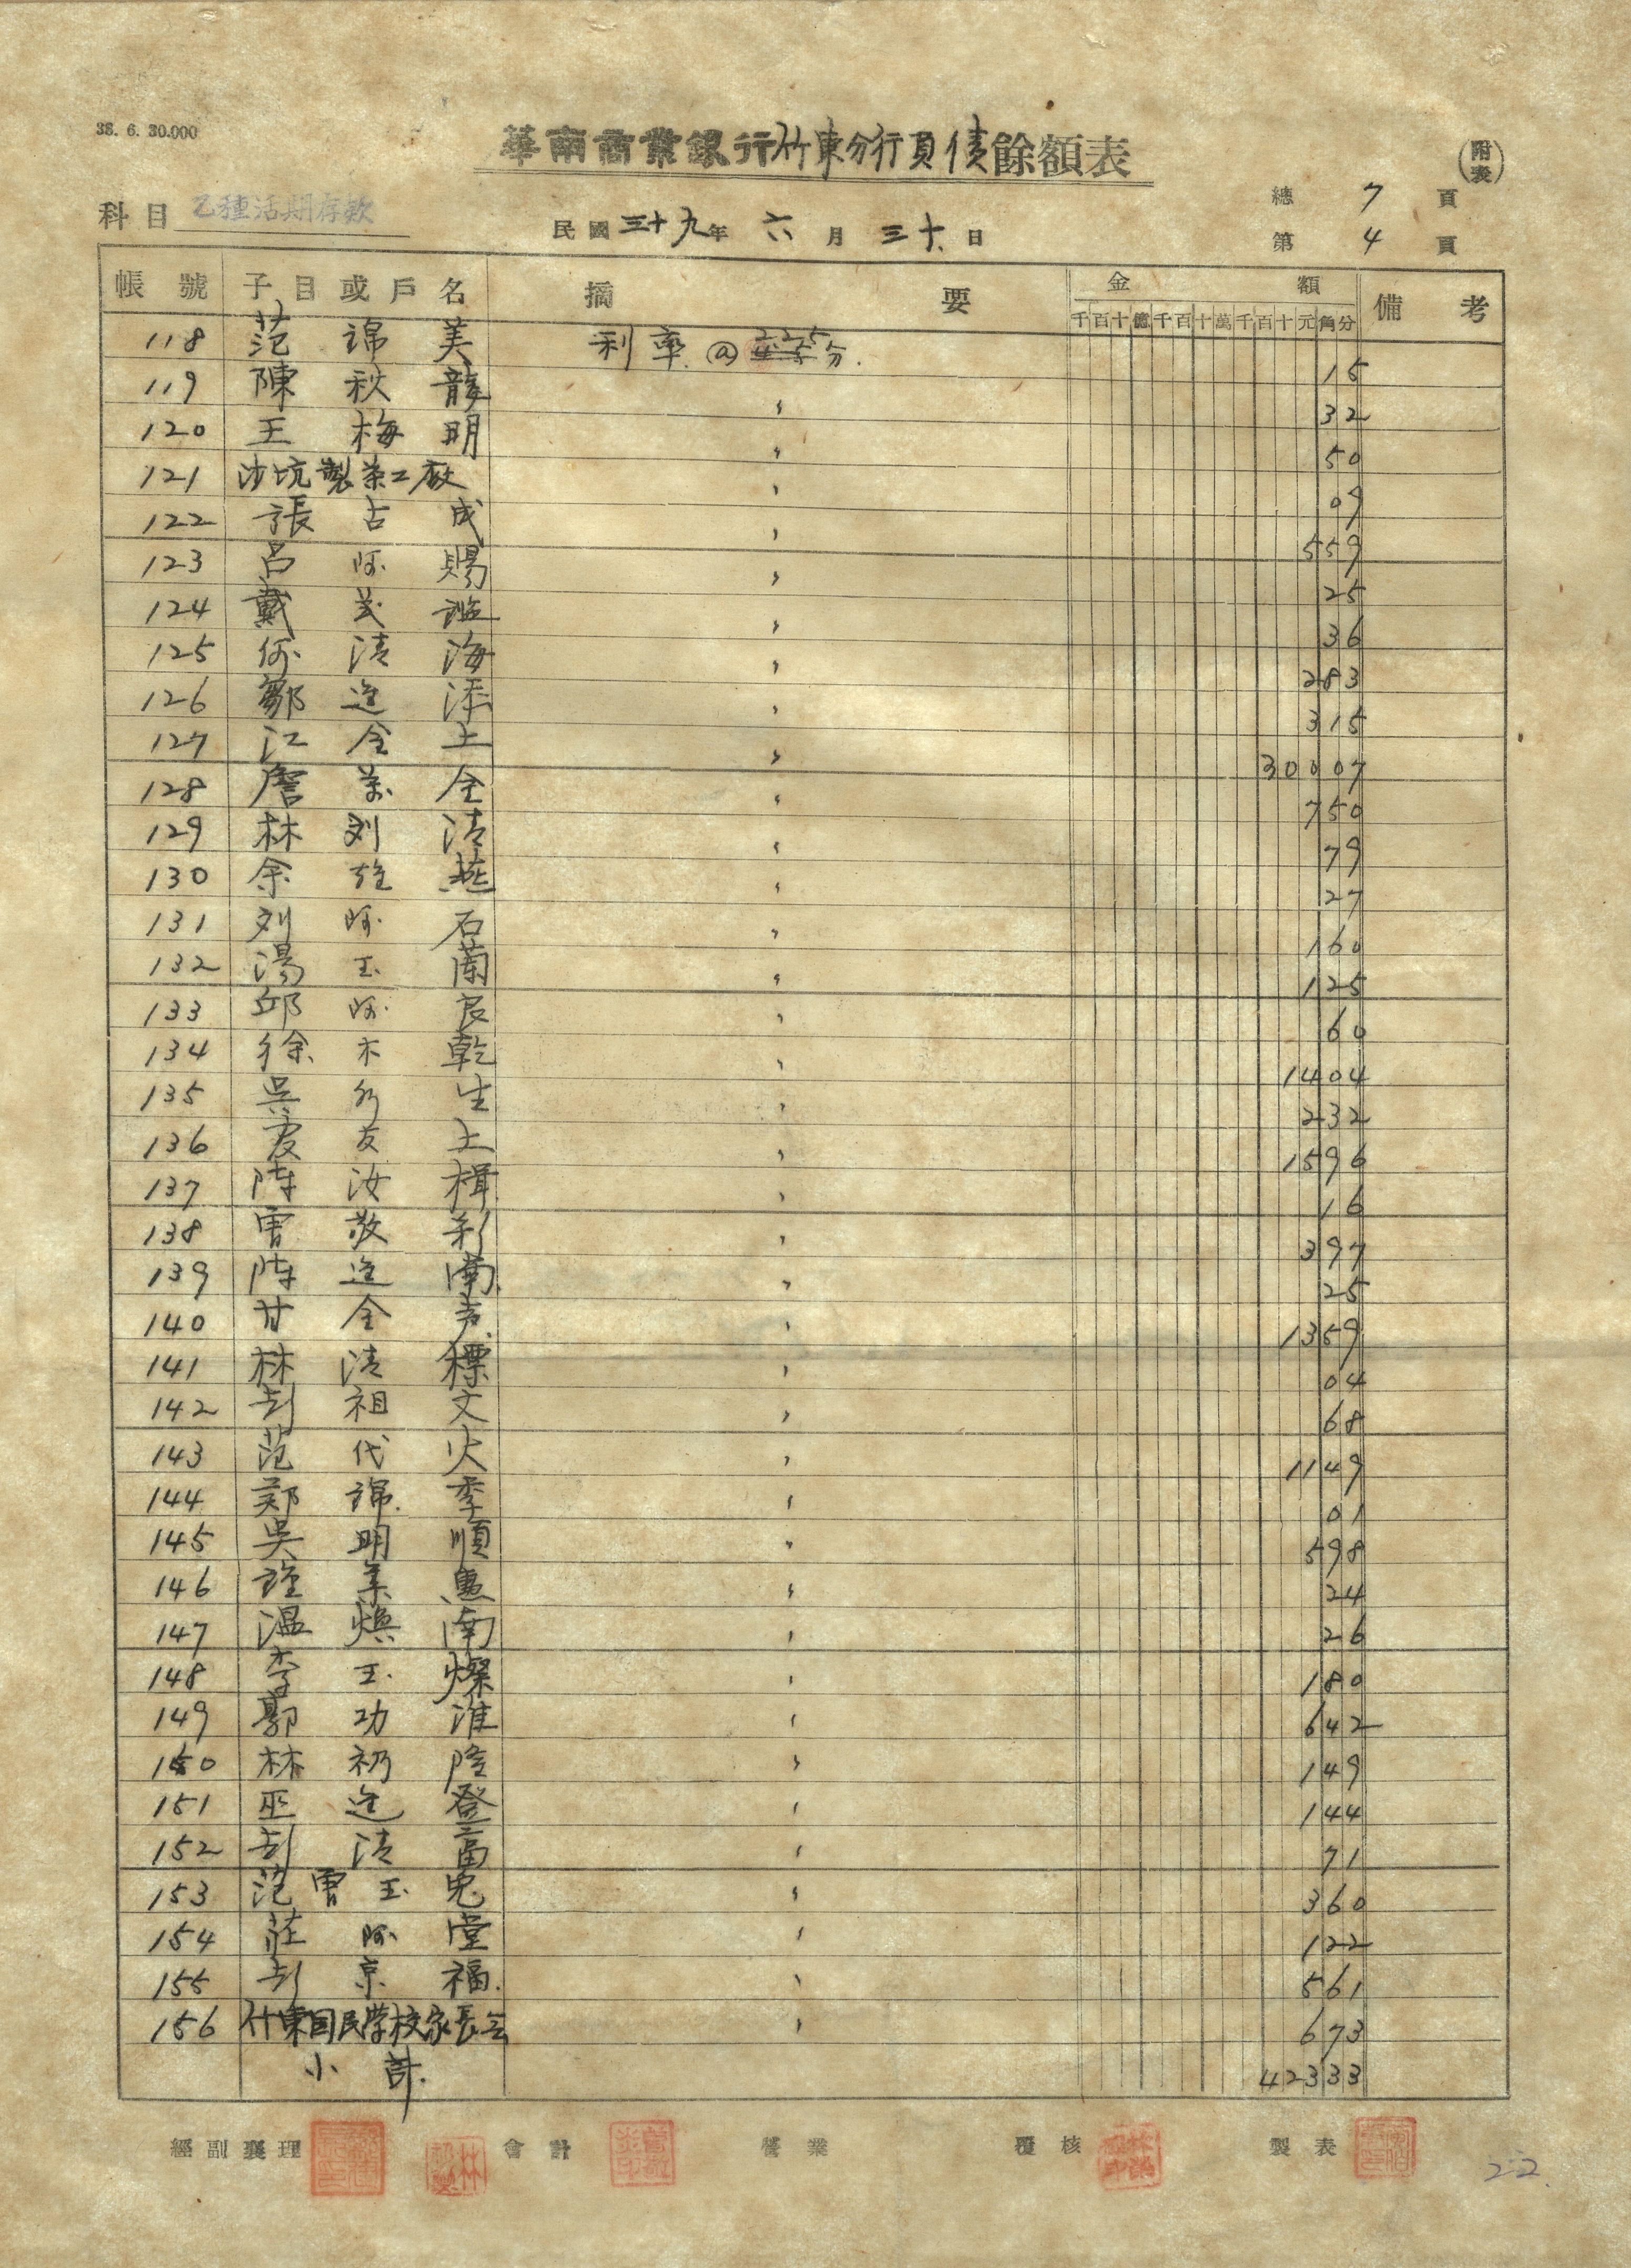 38. 6. 30.000
華南商業銀行竹東分行負債餘額表
(附表)
科目 乙種活期存款
民國 三十九年 六 月 三十 日
總 7 頁
第 4 頁
帳號 子目或戶名 摘要 金額 備考
千百十億千百十萬千百十元角分
118 范錦美 利率 @ 分. 15
119 陳秋龍 〃 32
120 王梅明 〃 50
121 沙坑製茶工廠 〃 09
122 張占成 〃 559
123 呂阿賜 〃 25
124 戴 〃 36
125 何清海 〃 283
126 鄒進添 〃 315
127 江金土 〃 30007
128 詹 金 〃 750
129 林刘清 〃 79
130 余 燕 〃 27
131 刘阿石 〃 160
132 湯玉蘭 〃 125
133 邱阿良 〃 60
134 徐木乾 〃 1404
135 吳 生 〃 232
136 友土 〃 1596
137 陳汝楫 〃 16
138 曾敬彩 〃 397
139 陳進蘭 〃 25
140 甘金声 〃 1359
141 林清標 〃 04
142 彭祖文 〃 68
143 范代火 〃 1149
144 鄭錦季 〃 01
145 吳明順 〃 598
146 〃 24
147 溫煥南 〃 26
148 李玉燦 〃 180
149 郭功淮 〃 642
150 林初隆 〃 149
151 巫進登 〃 144
152 彭清富 〃 71
153 范曾玉兔 〃 360
154 莊阿堂 〃 122
155 彭京福 〃 561
156 竹東国民学校家長会 〃 673
小計. 42333
經副襄理 會計 營業 覆核 製表
22.